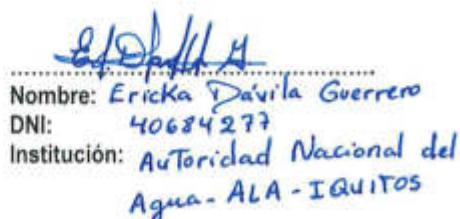 Nombre: Ericka Dávila Guerrero
DNI: 40684277
Institución: Autoridad Nacional del
Agua - ALA - IQUITOS